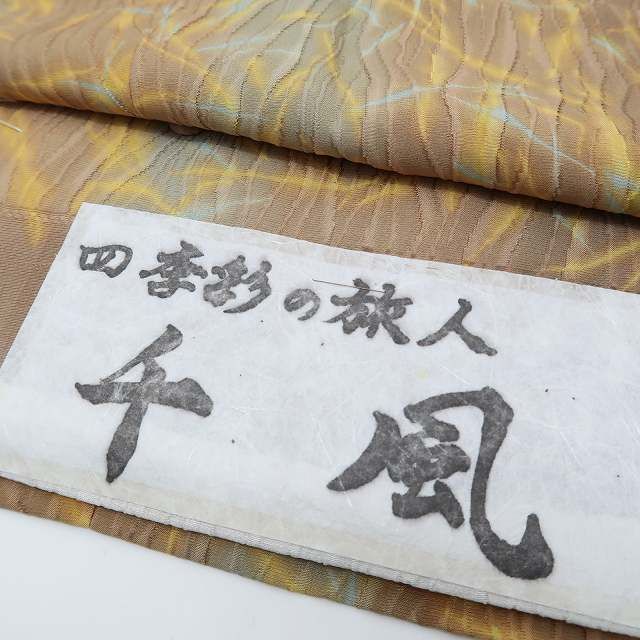 四季彩の旅人
千風